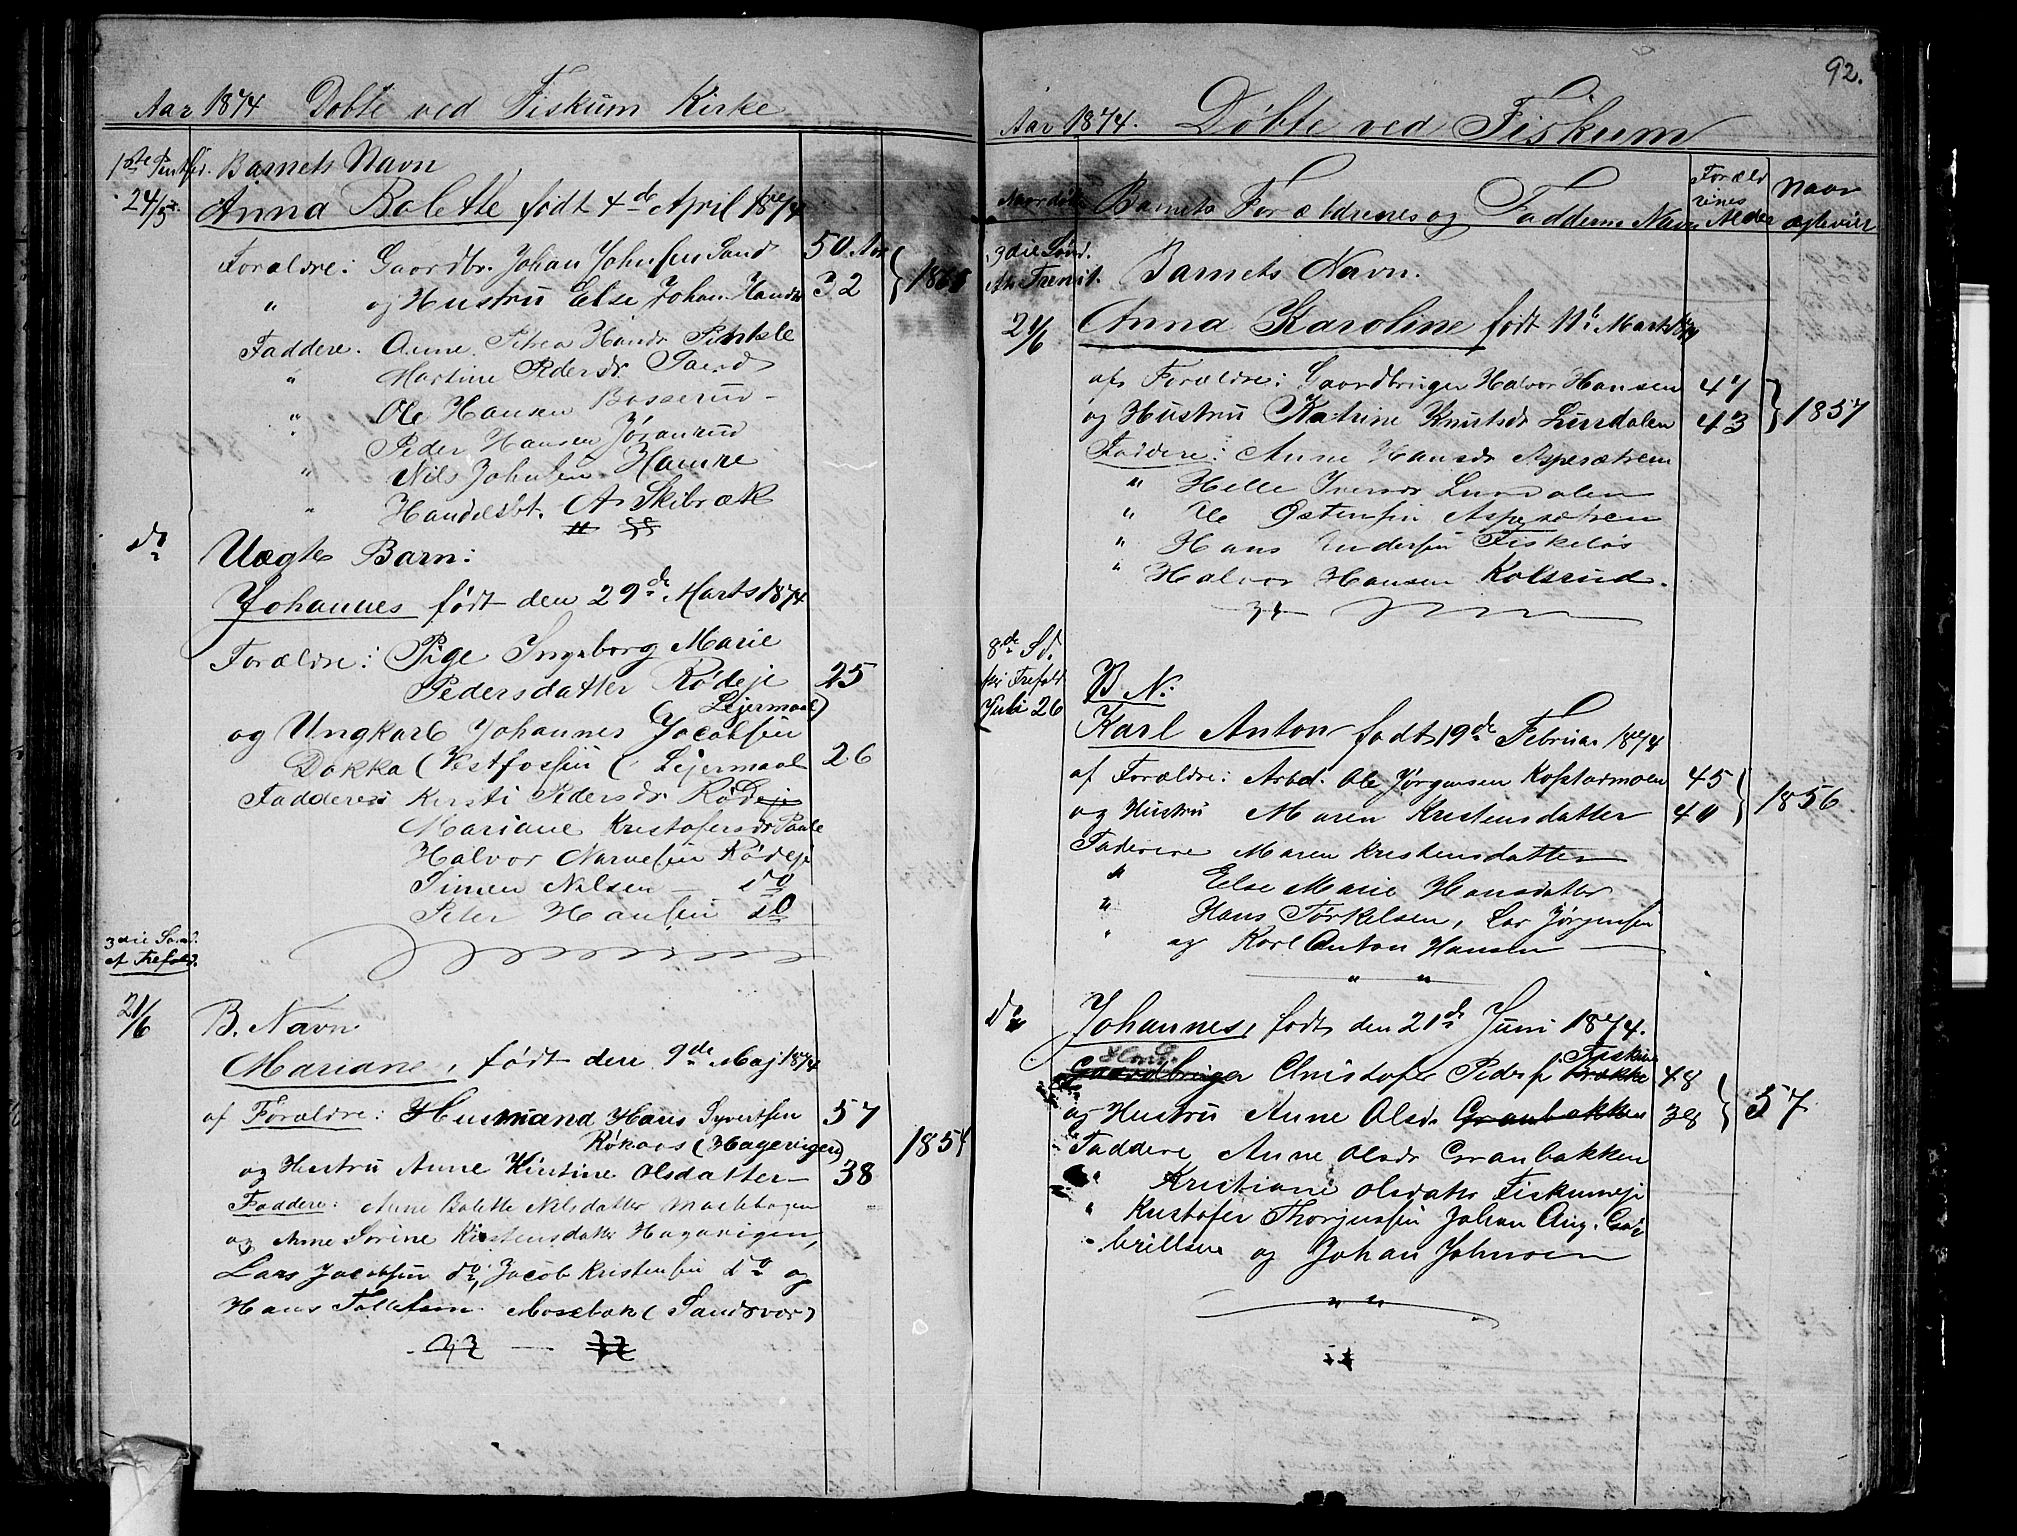 Aar 1874 Døbte ved Fiskum Kirke
1ste Pintsd. Barnets Navn
24/5 Anna Bolette født 4de April 1874
Forældre: Gaardbr. Johan Johnsen Sand 50 Aar
" og Hustru Else Johan. Hansdr 32
Faddere. Anne Petrea Hansdr
" Martine Pedersdr Sand
" Ole Hansen Bosserud
Peder Hansen
" Nils Johnsen Hamre
" Handelsbt. A. Skibræk
do Uægte Barn:
Johannes født den 29de Marts 1874
Forældre: Pige Ingeborg Marie
Pedersdatter Rødeje 25
(Lejermaal)
og Ungkarl Johannes Jacobsen
Dokka (Vestfossen ( Lejermaal 26
Faddere: Kersti Pedersdr Rødeje
Mariane Kristofersdr
Halvor Narvesen Rødeje
Simen Nilsen — do
Peter Hansen do
3die Sønd.
ef Trefold.
21/6 B. Navn
Mariane, født den 9de Maj 1874
af Forældre: Husmand Hans Syvertsen 57
Røkaas (Hagevigen) 1854
og Hustru Anne Kirstine Olsdatter 38
Faddere: Anne Bolette Nilsdatter
og Anne Sorine Kirstensdatter Hagavigen,
Lars Jacobsen do, Jacob Kristensen do og
Hans Tollefsen Mosebak (Sandsvær)
92.
Aar 1874. Døbte ved Fiskum
Naar døbt Barnets Forældrenes og Faddernes Navn Forældrenes Alder Naar ægteviet
3die Sønd.
ef. Trenit. Barnets Navn.
21/6 Anna Karoline født 11te Marts 1874
af Forældre: Gaardbruger Halvor Hansen 47
og Hustru Katrine Knutsdr Lurdalen 43 } 1857
Faddere: Anne Hansdr Aspesætren
" Helle Iversdr Lurdalen
" Ole Østensen Aspesætren
" Hans Andersen Fiskeløs
" Halvor Hansen Kolsrud.
8de Sd.
Trefold
Juli 26 B. N:
Karl Anton født 19de Februar 1874
af Forældre: Arbd. Ole Jørgensen Kopstadmoen 45
og Hustru Maren Kristensdatter 40 } 1856
Faddere Maren Kristensdatter
" Else Marie Hansdatter
" Hans Torkelsen, Lar Jørgensen
" og Karl Anton Hansen
" "
do Johannes, født den 21de Juni 1874.
Gaardbruger Christofer Peders. Brække 48
og Hustru Anne Olsdr Granbakken 38 } 57
Faddere Anne Olsdr Granbakken
" Kristiane Olsdatr Fiskumeje
" Kristofer Thorjussen Johan Aug. Ga-
" brillsen og Johan Johnsen
" "